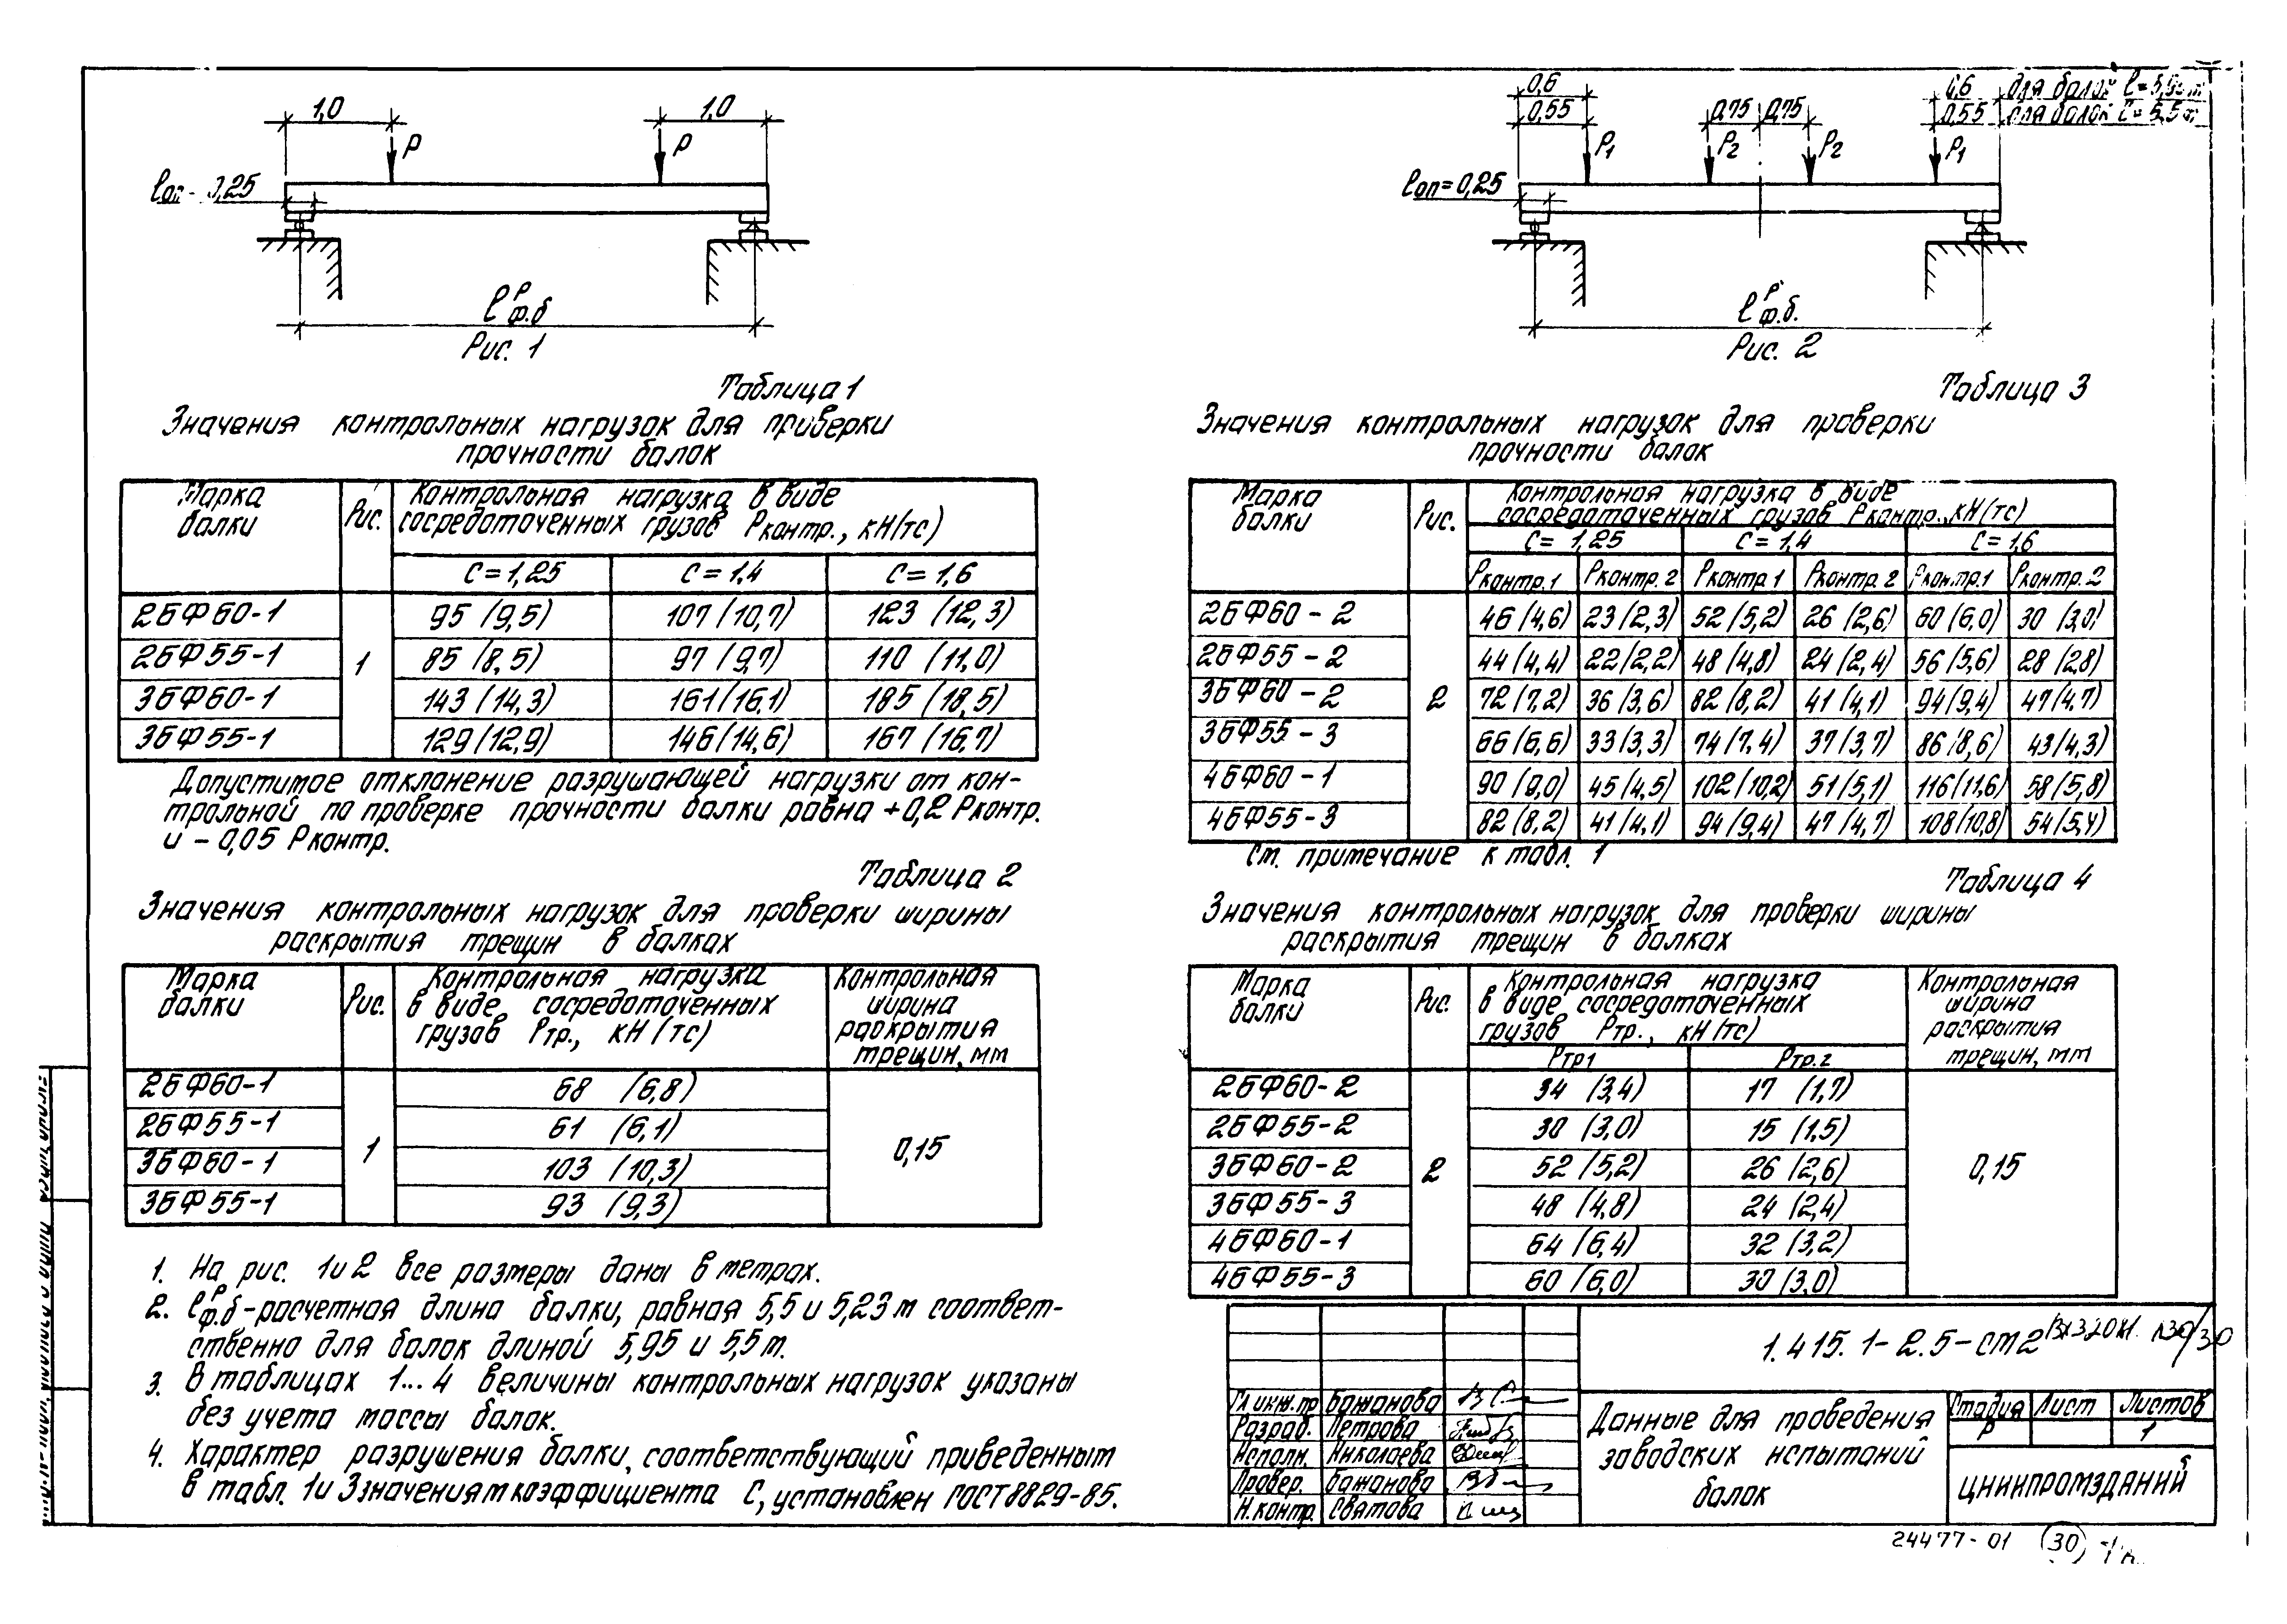 1,0
1,0
P
P
lоп - 0,25
l ф.б P
Рис. 1
0,6
0,55
0,75 0,75
0,6 для балок
0,55 для балок l = 5,5 м
P1
P2
P2
P1
lоп = 0,25
l ф.б. P
Рис. 2
Таблица 1
Значения контрольных нагрузок для проверки
прочности балок
Марка балки | Рис. | Контрольная нагрузка в виде сосредоточенных грузов Рконтр., кН(тс)
С = 1,25 | С = 1,4 | С = 1,6
2БФ60-1 | 1 | 95 (9,5) | 107 (10,7) | 123 (12,3)
2БФ55-1 | 85 (8,5) | 97 (9,7) | 110 (11,0)
3БФ60-1 | 143 (14,3) | 161 (16,1) | 185 (18,5)
3БФ55-1 | 129 (12,9) | 146 (14,6) | 167 (16,7)
Допустимое отклонение разрушающей нагрузки от кон-
трольной по проверке прочности балки равна +0,2 Рконтр.
и - 0,05 Рконтр.
Таблица 2
Значения контрольных нагрузок для проверки ширины
раскрытия трещин в балках
Марка балки | Рис. | Контрольная нагрузка в виде сосредоточенных грузов Ртр., кН (тс) | Контрольная ширина раскрытия трещин, мм
2БФ60-1 | 1 | 68 (6,8) | 0,15
2БФ55-1 | 61 (6,1)
3БФ60-1 | 103 (10,3)
3БФ55-1 | 93 (9,3)
1. На рис. 1 и 2 все размеры даны в метрах.
2. l ф.б P - расчетная длина балки, равная 5,5 и 5,23 м соответ-
ственно для балок длиной 5,95 и 5,5 м.
3. В таблицах 1...4 величины контрольных нагрузок указаны
без учета массы балок.
4. Характер разрушения балки, соответствующий приведенным
в табл. 1 и 3 значениям коэффициента С, установлен ГОСТ 8829-85.
Таблица 3
Значения контрольных нагрузок для проверки
прочности балок
Марка балки | Рис. | Контрольная нагрузка в виде сосредоточенных грузов Рконтр., кН(тс)
С = 1,25 | С = 1,4 | С = 1,6
Рконтр.1 | Рконтр.2 | Рконтр.1 | Рконтр.2 | Рконтр.1 | Рконтр.2
2БФ60-2 | 2 | 46 (4,6) | 23 (2,3) | 52 (5,2) | 26 (2,6) | 60 (6,0) | 30 (3,0)
2БФ55-2 | 44 (4,4) | 22 (2,2) | 48 (4,8) | 24 (2,4) | 56 (5,6) | 28 (2,8)
3БФ60-2 | 72 (7,2) | 36 (3,6) | 82 (8,2) | 41 (4,1) | 94 (9,4) | 47 (4,7)
3БФ55-3 | 66 (6,6) | 33 (3,3) | 74 (7,4) | 37 (3,7) | 86 (8,6) | 43 (4,3)
4БФ60-1 | 90 (9,0) | 45 (4,5) | 102 (10,2) | 51 (5,1) | 116 (11,6) | 58 (5,8)
4БФ55-3 | 82 (8,2) | 41 (4,1) | 94 (9,4) | 47 (4,7) | 108 (10,8) | 54 (5,4)
См. примечание к табл. 1
Таблица 4
Значения контрольных нагрузок для проверки ширины
раскрытия трещин в балках
Марка балки | Рис. | Контрольная нагрузка в виде сосредоточенных грузов Ртр., кН (тс) | Контрольная ширина раскрытия трещин, мм
Ртр1 | Ртр.2
2БФ60-2 | 2 | 34 (3,4) | 17 (1,7) | 0,15
2БФ55-2 | 30 (3,0) | 15 (1,5)
3БФ60-2 | 52 (5,2) | 26 (2,6)
3БФ55-3 | 48 (4,8) | 24 (2,4)
4БФ60-1 | 64 (6,4) | 32 (3,2)
4БФ55-3 | 60 (6,0) | 30 (3,0)
1.415.1-2.5-СМ2
Гл инж.пр Бажанова
Разраб. Петрова
Исполн. Николаева
Провер. Бажанова
Н.контр. Святова
Данные для проведения
заводских испытаний
балок
Стадия Лист Листов
Р 1
ЦНИИПРОМЗДАНИЙ
24477-01 30